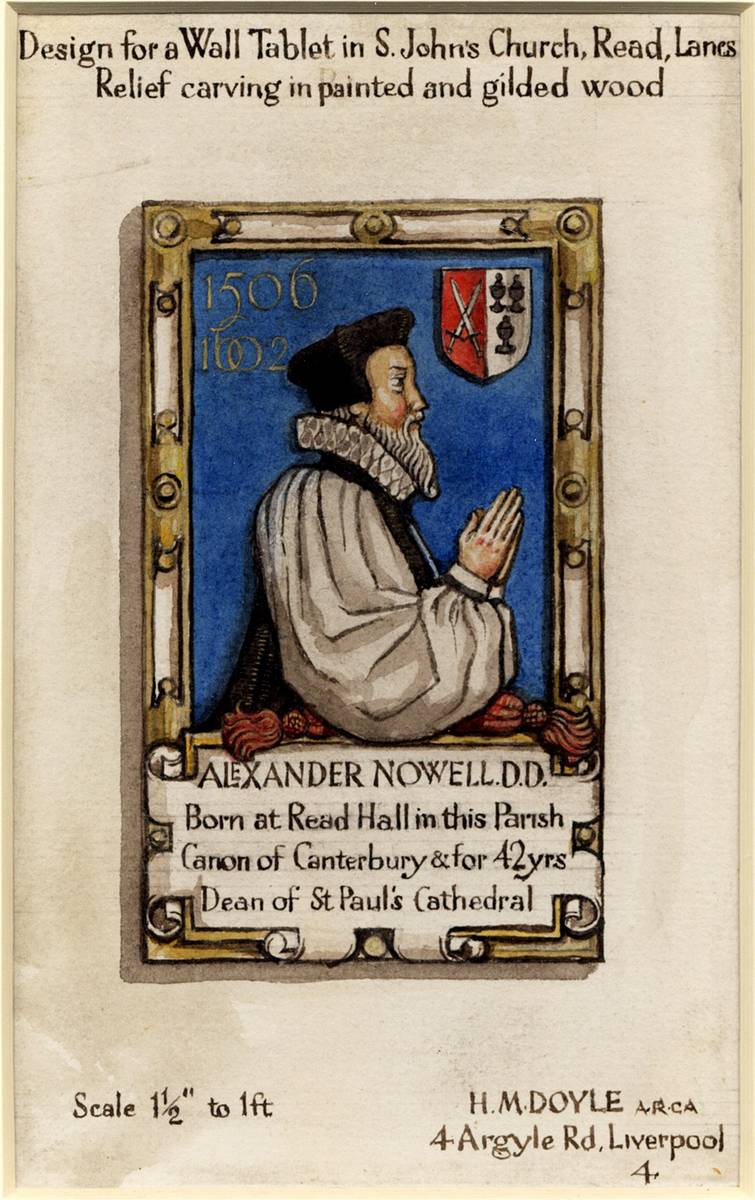 Design for a Wall Tablet in S. John's Church, Read, Lancs
Relief carving in painted and gilded wood
1506
1602
ALEXANDER NOWELL. D.D.
Born at Read Hall in this Parish
Canon of Canterbury & for 42yrs
Dean of St Paul's Cathedral
Scale 1½" to 1ft
H.M.DOYLE A.R.C.A
4 Argyle Rd, Liverpool
4